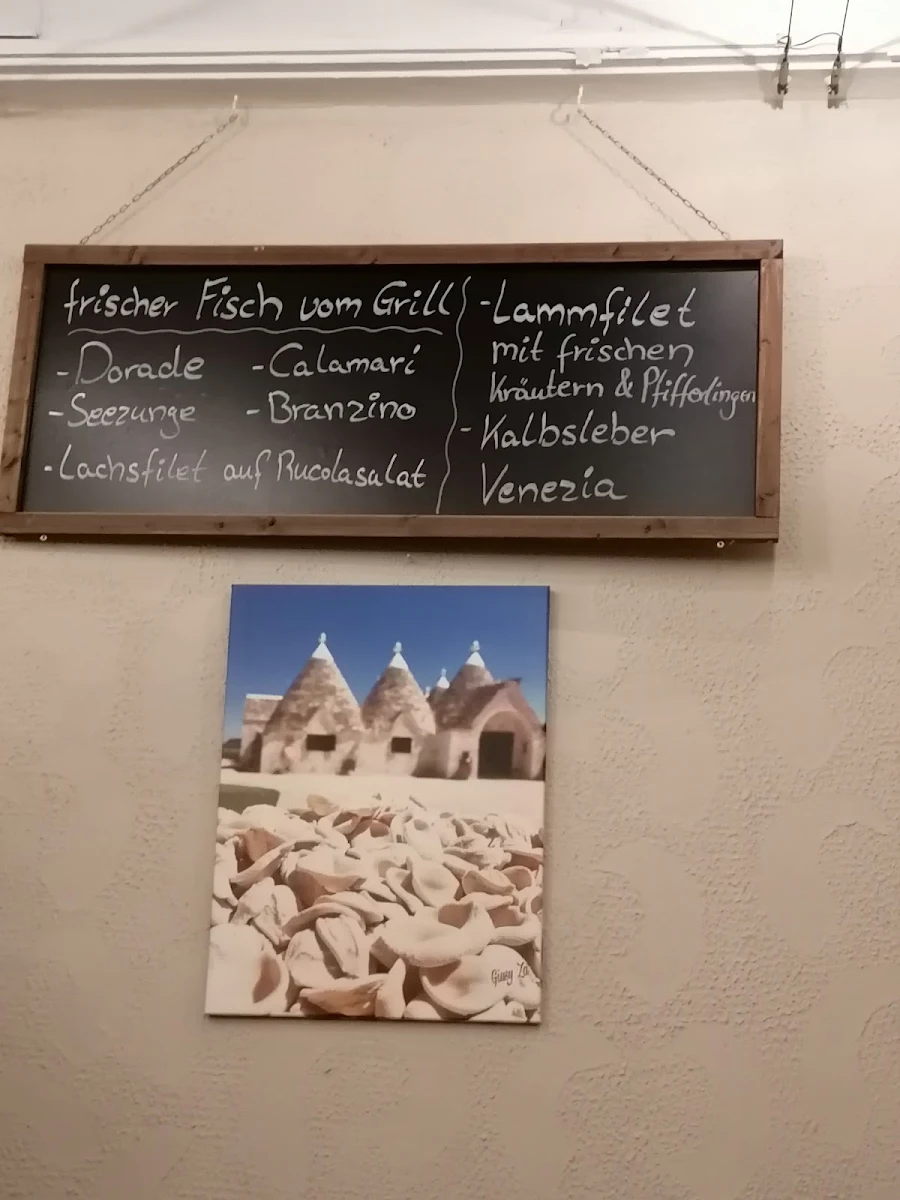 frischer Fisch vom Grill
- Dorade
- Calamari
- Seezunge
- Branzino
- Lachsfilet auf Rucolasalat
- Lammfilet
mit frischen
Kräutern & Pfifferlingen
- Kalbsleber
Venezia